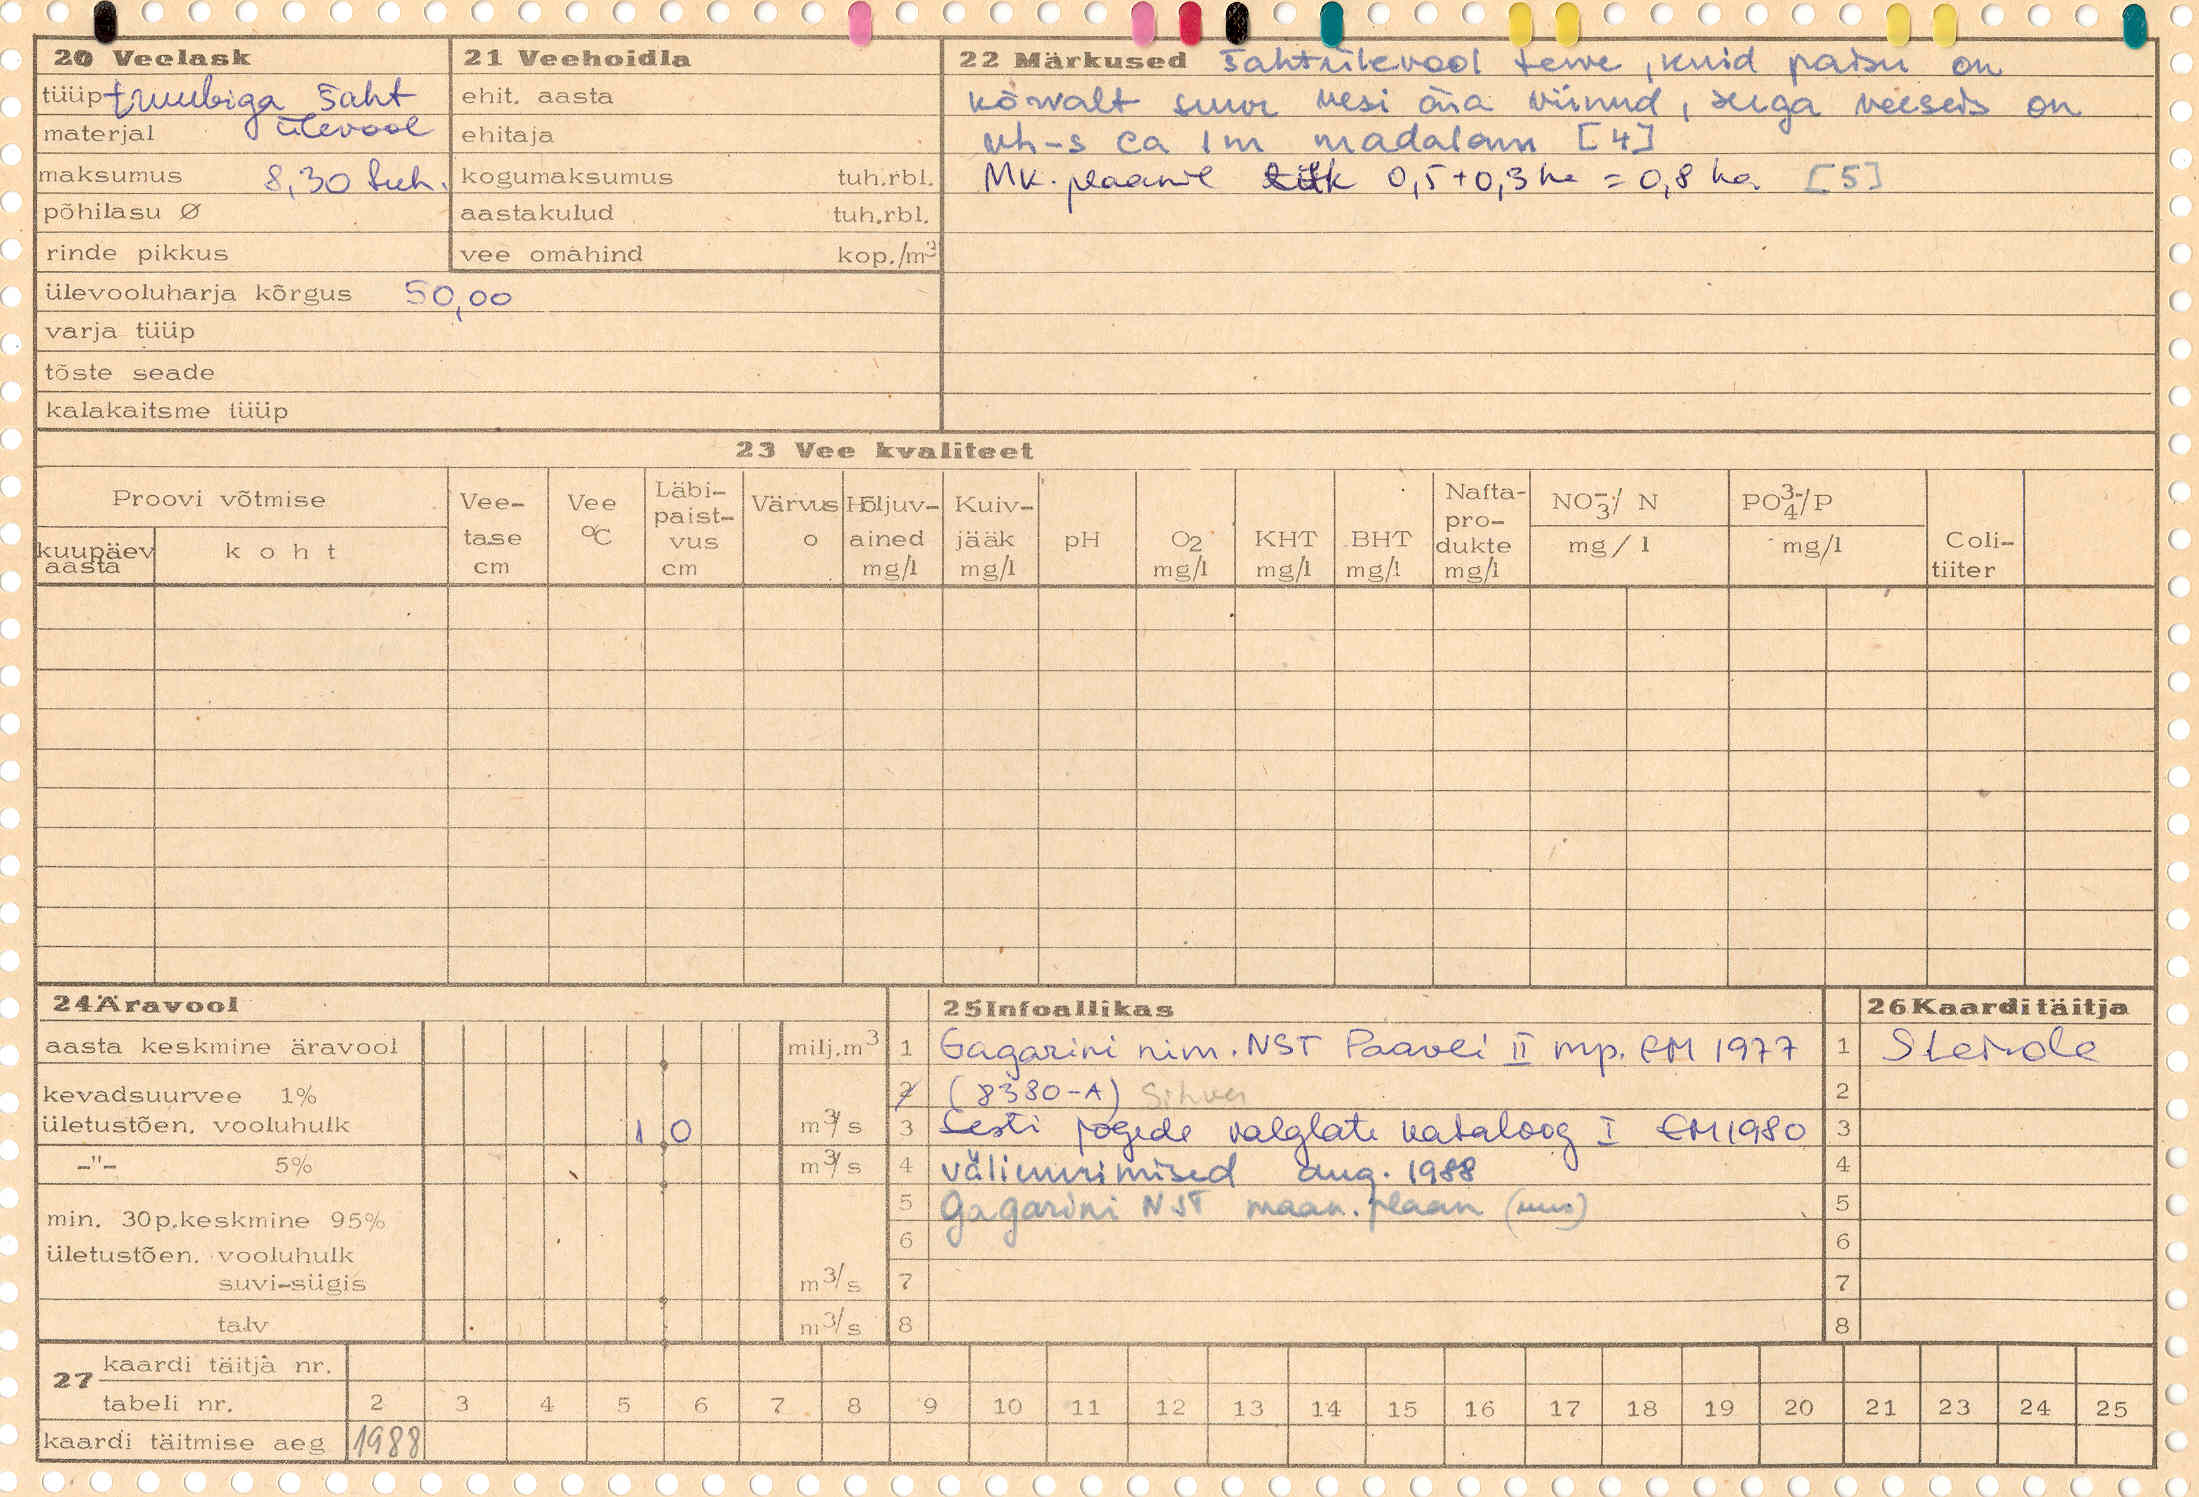 20 Veelask
tüüp truubiga šaht
ülevool
materjal
maksumus 8,30 tuh.
põhilasu Ø
rinde pikkus
ülevooluharja kõrgus 50,00
varja tüüp
tõste seade
kalakaitsme tüüp
21 Veehoidla
ehit. aasta
ehitaja
kogumaksumus tuh.rbl.
aastakulud tuh.rbl.
vee omahind kop./m3
22 Märkused šahtülevool terve, kuid paisu on
kõrvalt suur vesi ära viinud, seega veeseis on
vh-s ca 1m madalam [4]
MK. plaanil tiik 0,5+0,3 ha = 0,8 ha [5]
23 Vee kvaliteet
Proovi võtmise
kuupäev aasta
koht
Vee-
tase
cm
Vee
°C
Läbi-
paist-
vus
cm
Värvus
o
Hõljuv-
ained
mg/l
Kuiv-
jääk
mg/l
pH
O2
mg/l
KHT
mg/l
BHT
mg/l
Nafta-
pro-
dukte
mg/l
NO3-/ N
mg / l
PO4 3-/P
mg/l
Coli-
tiiter
24 Äravool
aasta keskmine äravool milj.m3
kevadsuurvee 1%
ületustõen. vooluhulk 1 0 m3/s
-"- 5% m3/s
min. 30p.keskmine 95%
ületustõen. vooluhulk
suvi-sügis m3/s
talv m3/s
25 Infoallikas
1 Gagarini nim. NST Paaveli II mp. EM 1977
2 (8380-A) Sihver
3 Eesti jõgede valglate kataloog I EM 1980
4 väliuurimised aug. 1988
5 Gagarini NST maak. plaan (uus)
6
7
8
26 Kaarditäitja
1 Steinole
2
3
4
5
6
7
8
27 kaardi täitja nr.
tabeli nr. 2 3 4 5 6 7 8 9 10 11 12 13 14 15 16 17 18 19 20 21 23 24 25
kaardi täitmise aeg 1988